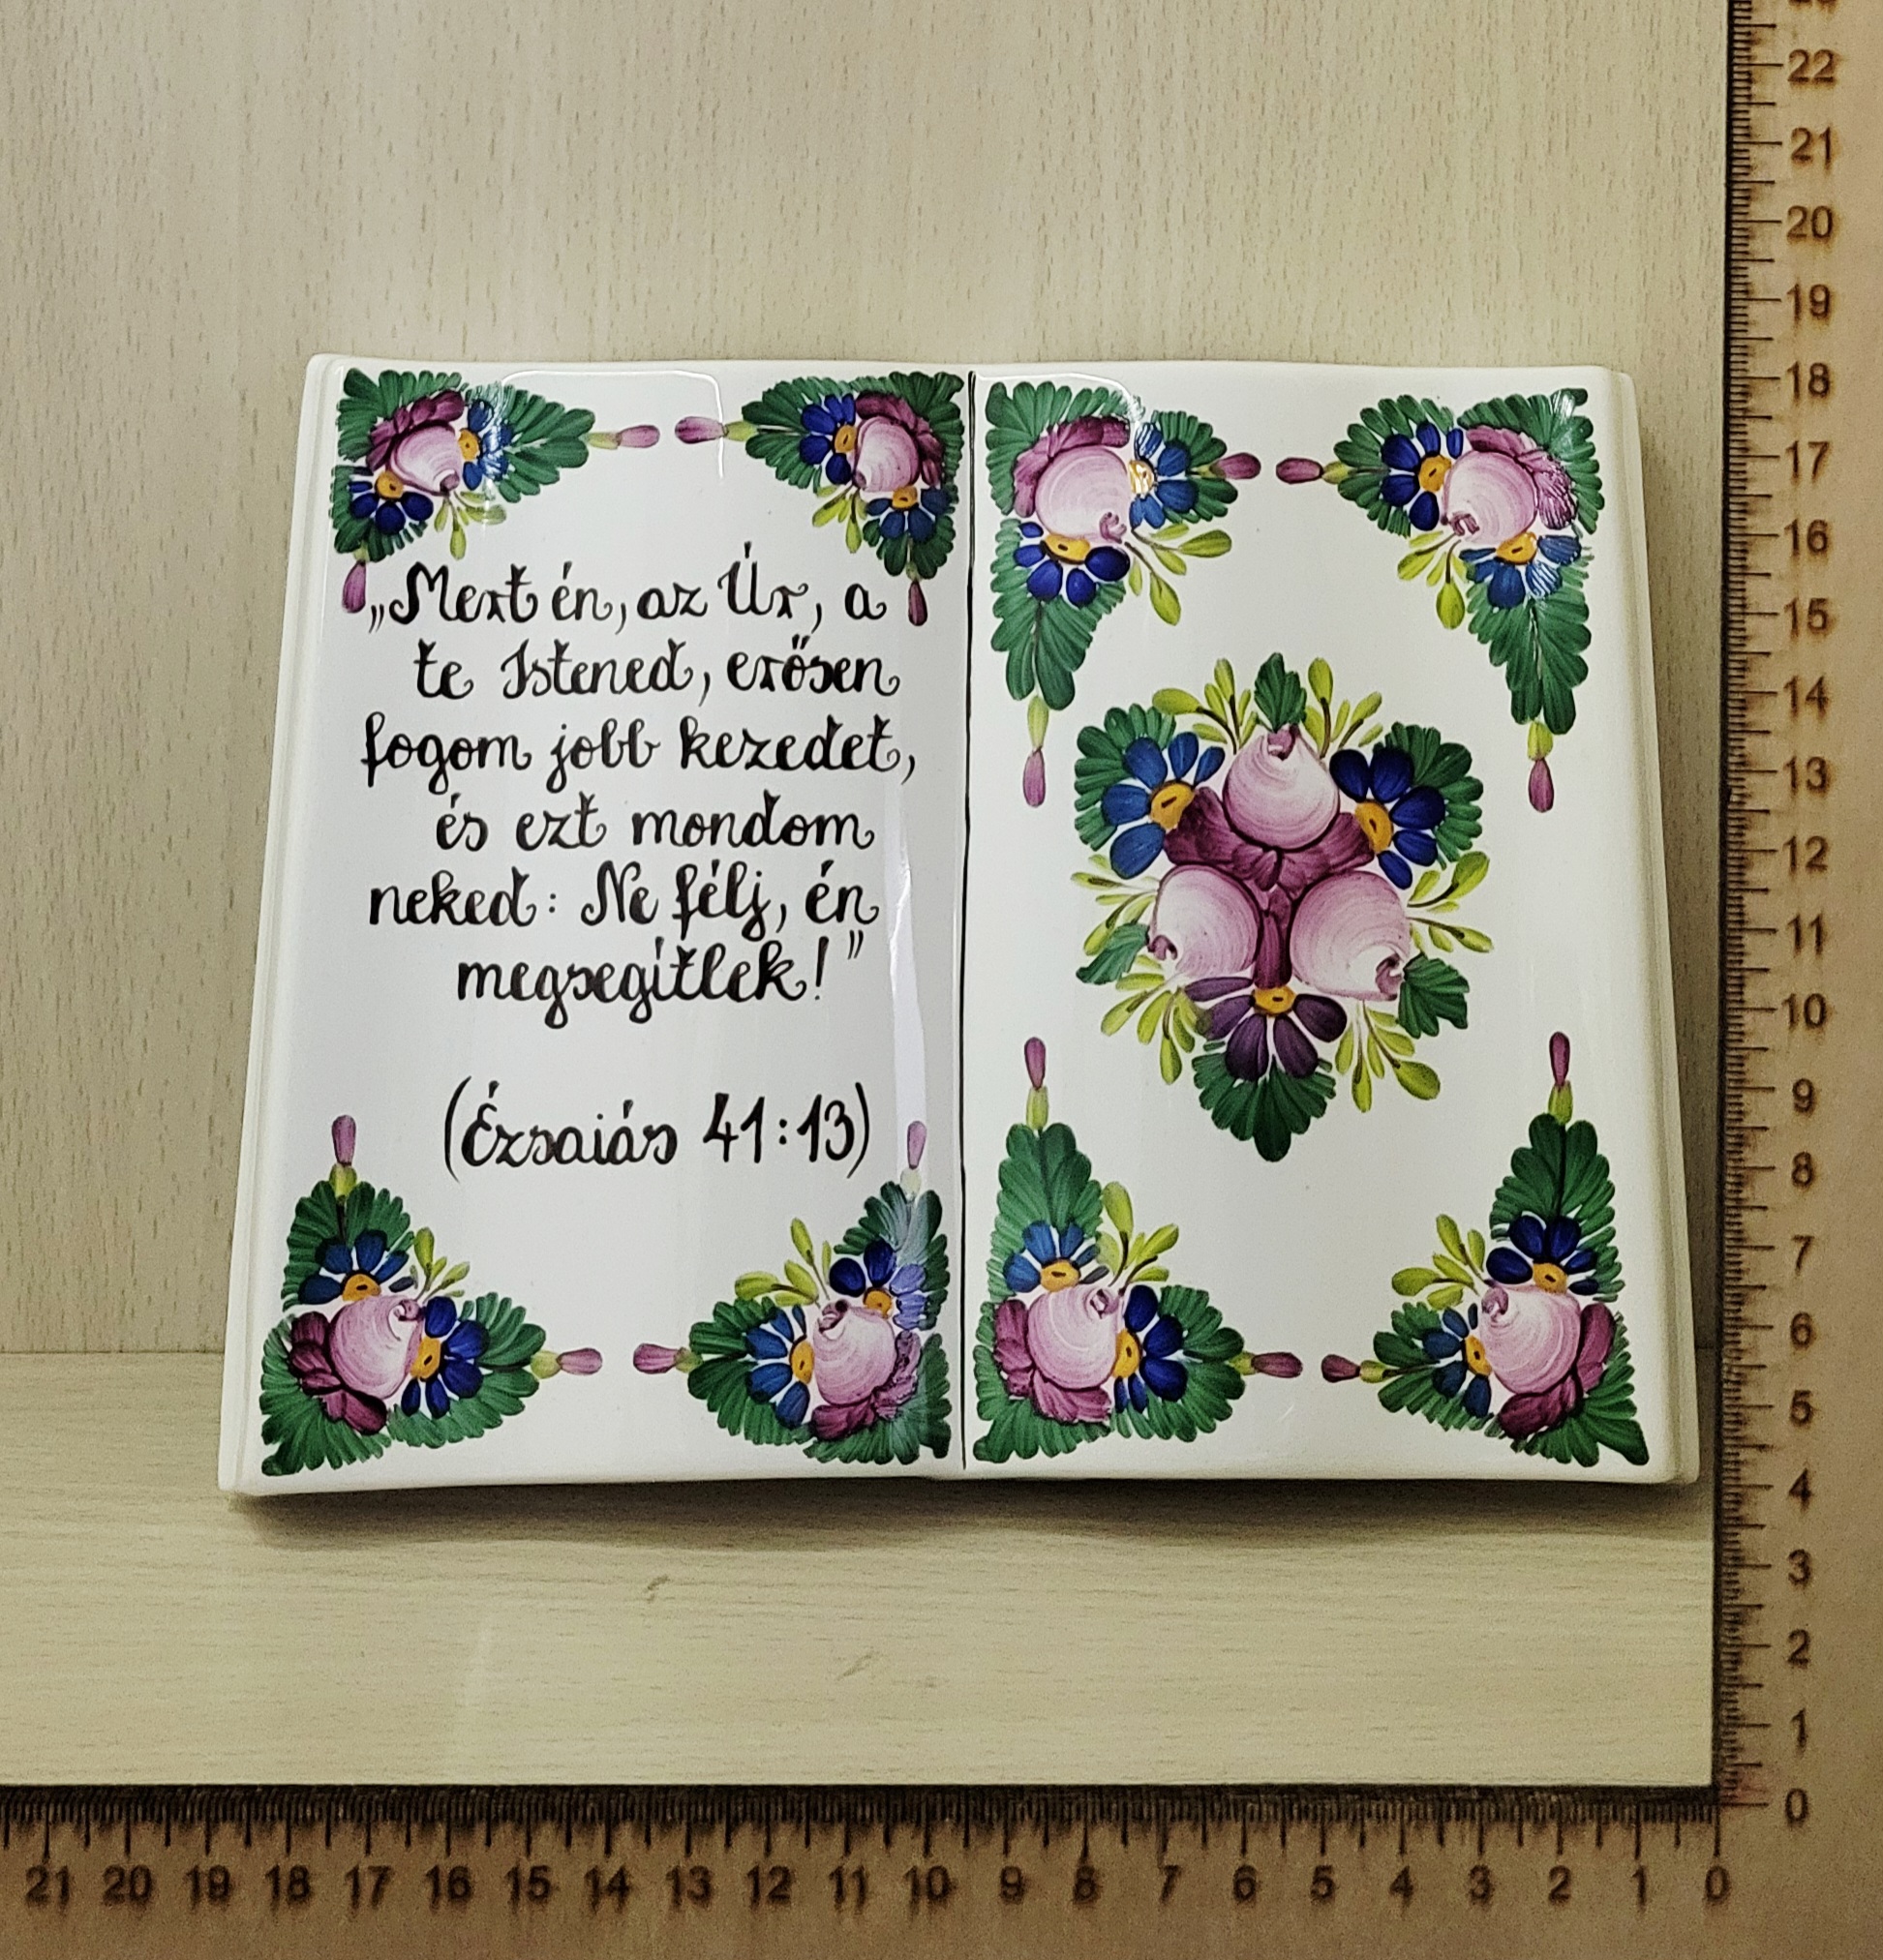 „Mert én, az Úr, a
te Istened, erősen
fogom jobb kezedet,
és ezt mondom
neked: Ne félj, én
megsegítlek!”
(Ézsaiás 41:13)
22
21
20
19
18
17
16
15
14
13
12
11
10
9
8
7
6
5
4
3
2
1
0
21 20 19 18 17 16 15 14 13 12 11 10 9 8 7 6 5 4 3 2 1 0